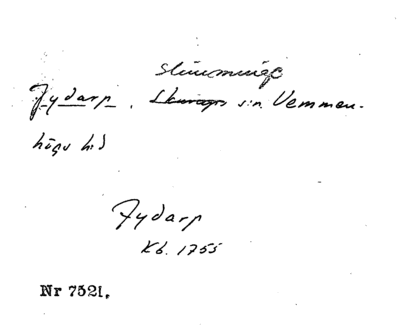 Slimminge
Fydarp, s:n Vemmen-
högs hd
Fydarp
Kb. 1755
Nr 7521.